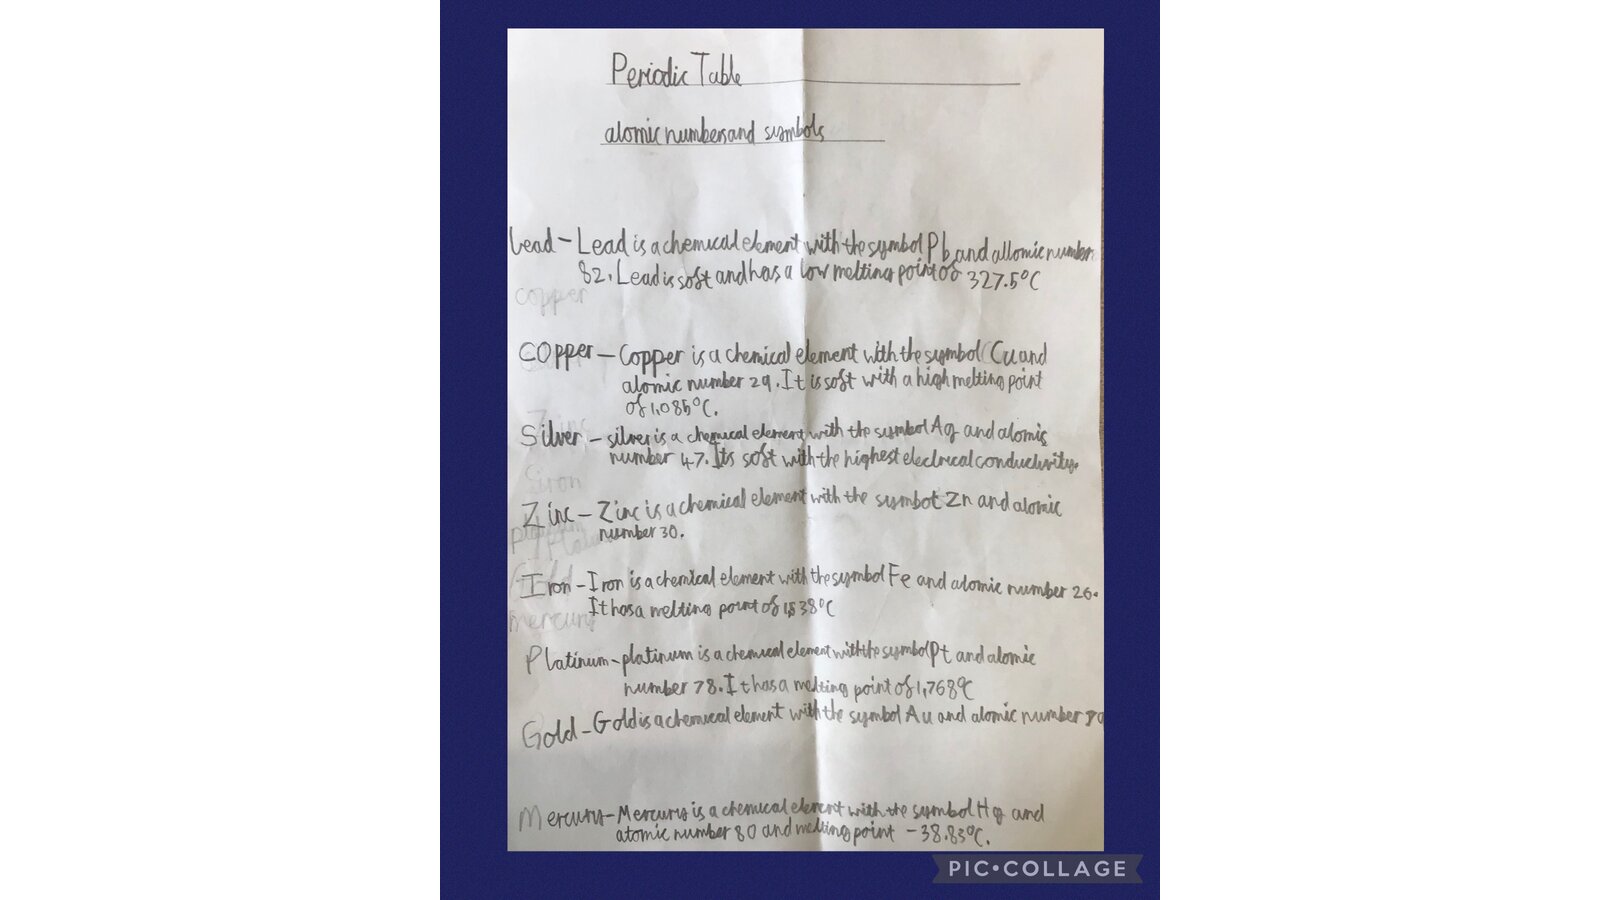 Periodic Table
atomic numbers and symbols
Lead - Lead is a chemical element with the symbol Pb and allomic number
82. Lead is soft and has a low melting point of 327.5°C
copper
Copper - Copper is a chemical element with the symbol Cu and
atomic number 29. It is soft with a high melting point
of 1,085°C.
Zinc
Silver - silver is a chemical element with the symbol Ag and atomic
number 47. Its soft with the highest electrical conductivity.
Siron
Zinc - Zinc is a chemical element with the symbol Zn and atomic
number 30.
Iron - Iron is a chemical element with the symbol Fe and atomic number 26.
It has a melting point of 1,538°C
mercury
Platinum - platinum is a chemical element with the symbol Pt and atomic
number 78. It has a melting point of 1,768°C
Gold - Gold is a chemical element with the symbol Au and atomic number
Mercury - Mercury is a chemical element with the symbol Hg and
atomic number 80 and melting point -38.83°C.
PIC•COLLAGE